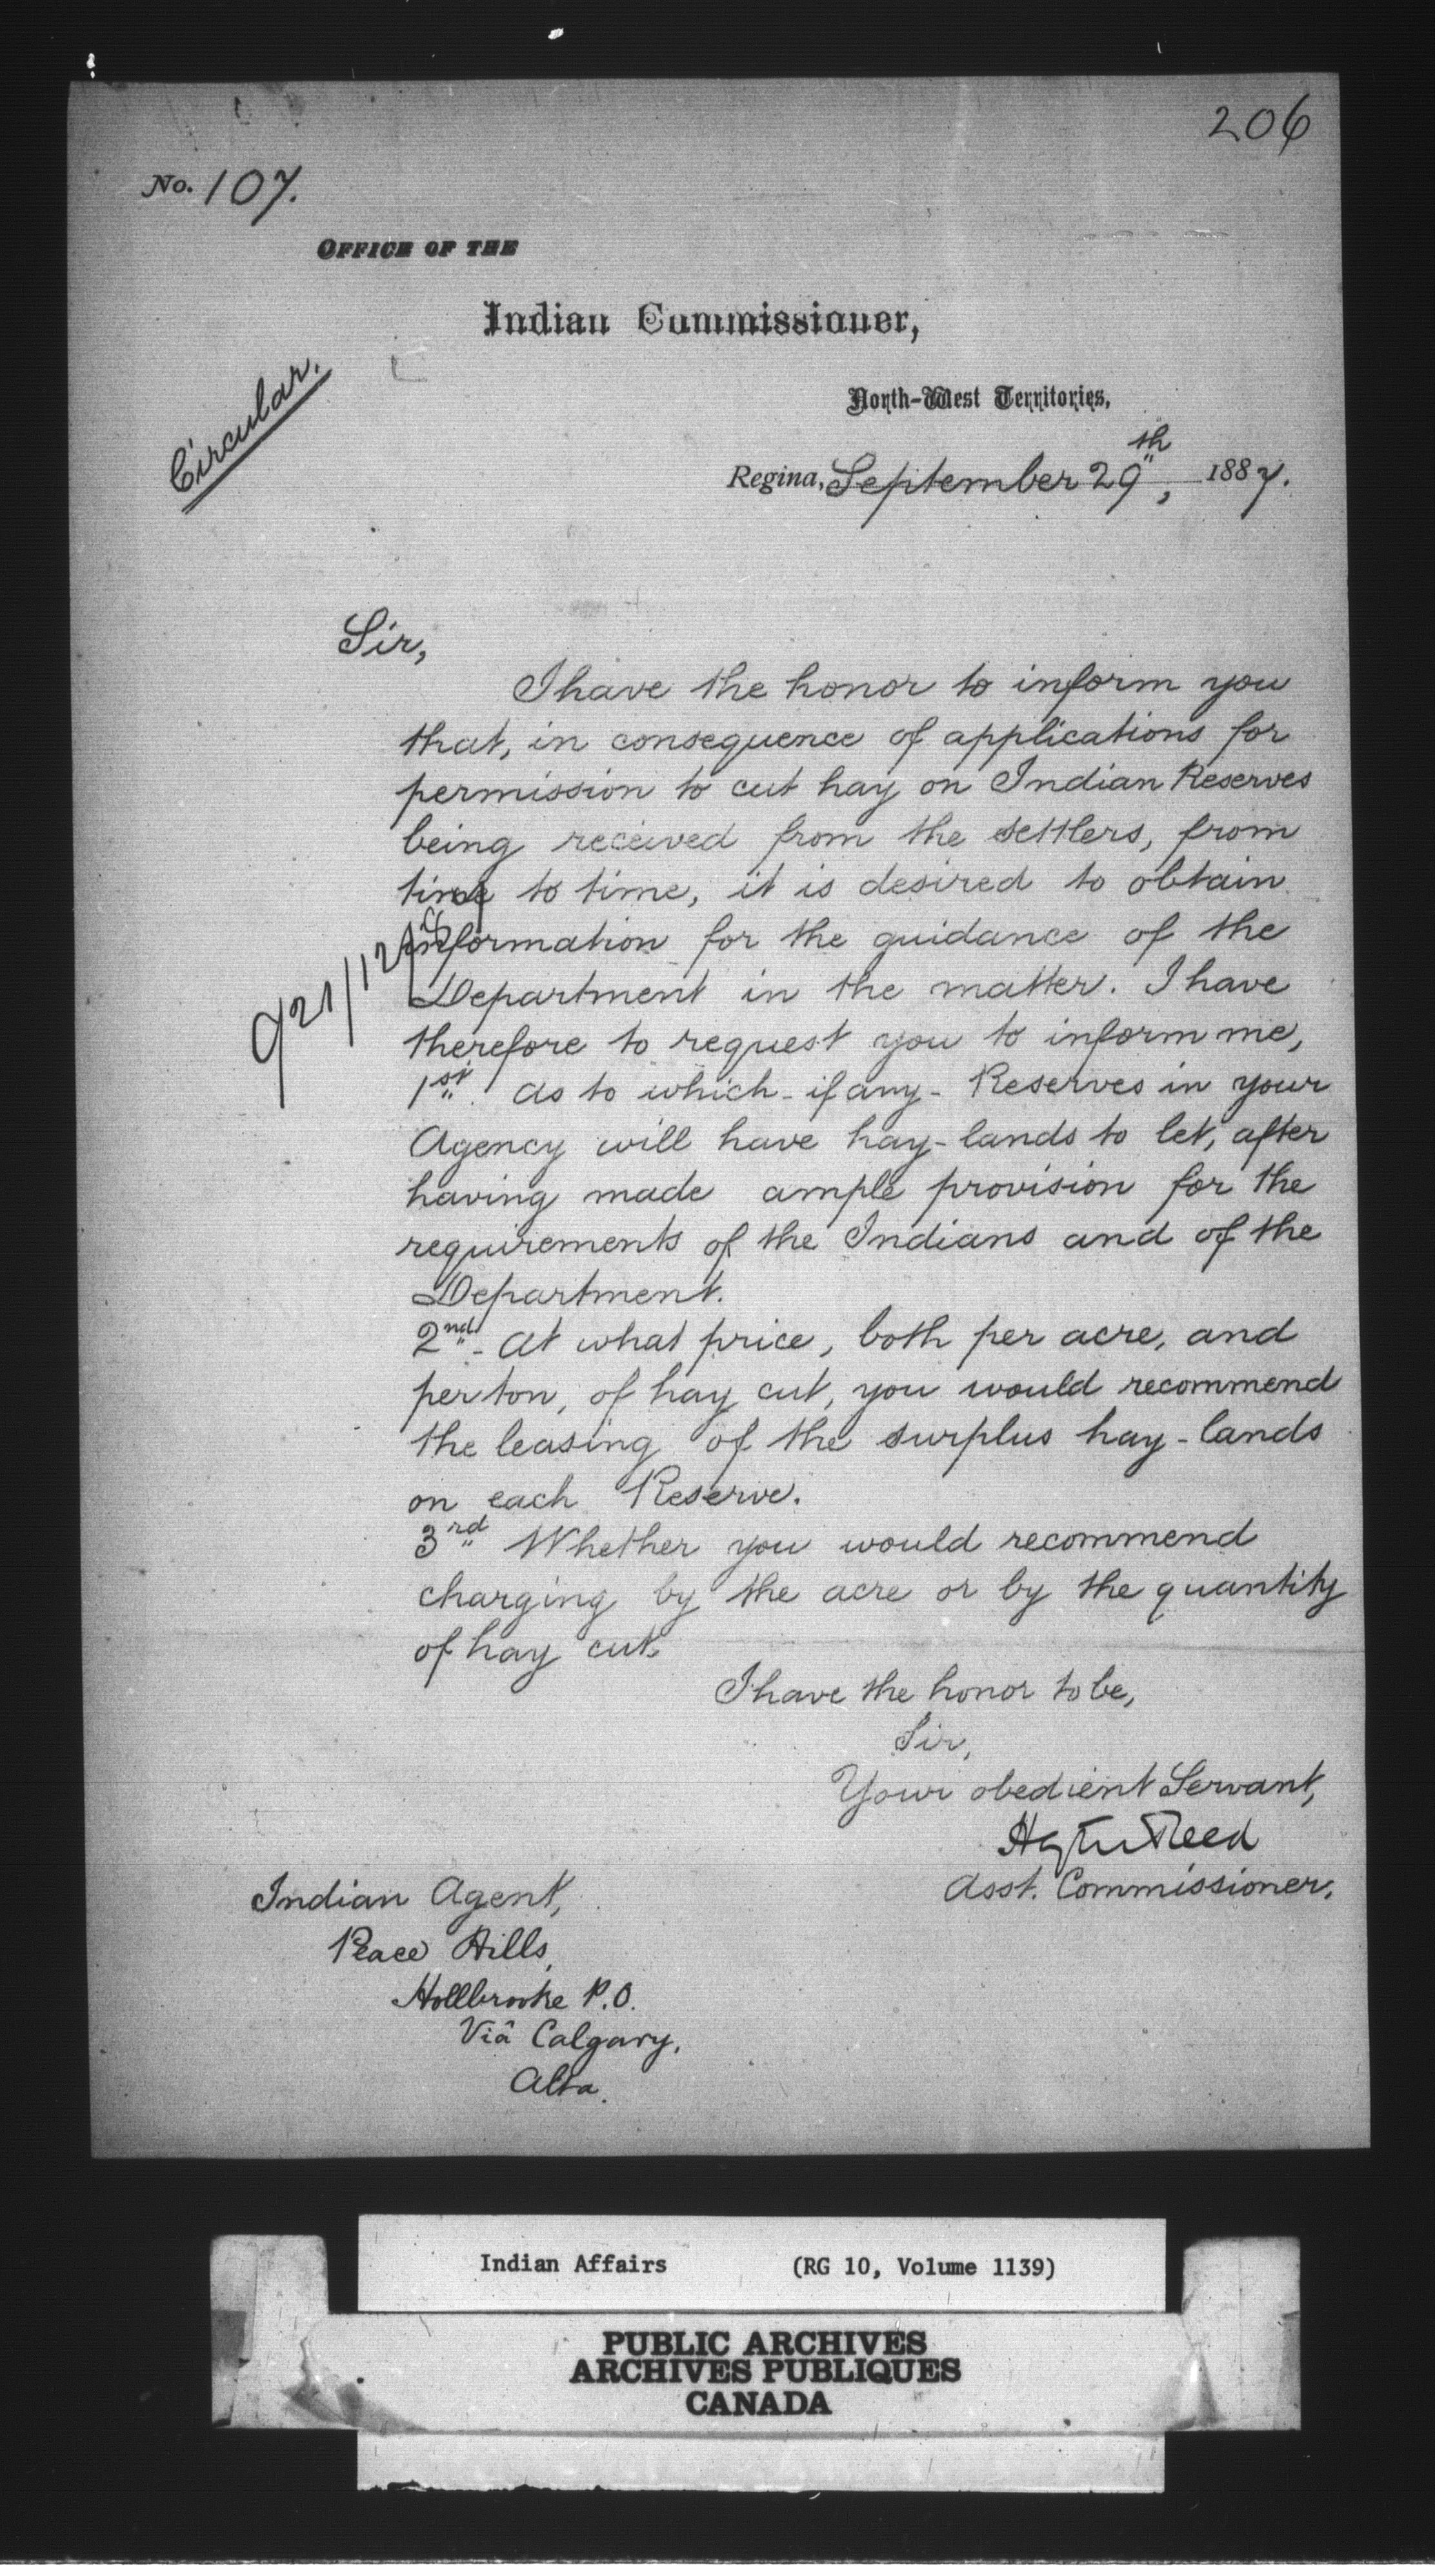 206
No. 107.
OFFICE OF THE
Indian Commissioner,
North-West Territories,
Circular.
Regina, September 29th, 1887.
Sir,
I have the honor to inform you
that, in consequence of applications for
permission to cut hay on Indian Reserves
being received from the settlers, from
time to time, it is desired to obtain
information for the guidance of the
Department in the matter. I have
therefore to request you to inform me,
1st. As to which - if any - Reserves in your
Agency will have hay-lands to let, after
having made ample provision for the
requirements of the Indians and of the
Department.
2nd - At what price, both per acre, and
per ton, of hay cut, you would recommend
the leasing of the surplus hay-lands
on each Reserve.
3rd Whether you would recommend
charging by the acre or by the quantity
of hay cut.
I have the honor to be,
Sir,
Your obedient Servant,
Hayter Reed
Asst. Commissioner.
Indian Agent,
Peace Hills,
Hollbrooke P.O.
Viâ Calgary,
Alta.
Indian Affairs (RG 10, Volume 1139)
PUBLIC ARCHIVES
ARCHIVES PUBLIQUES
CANADA